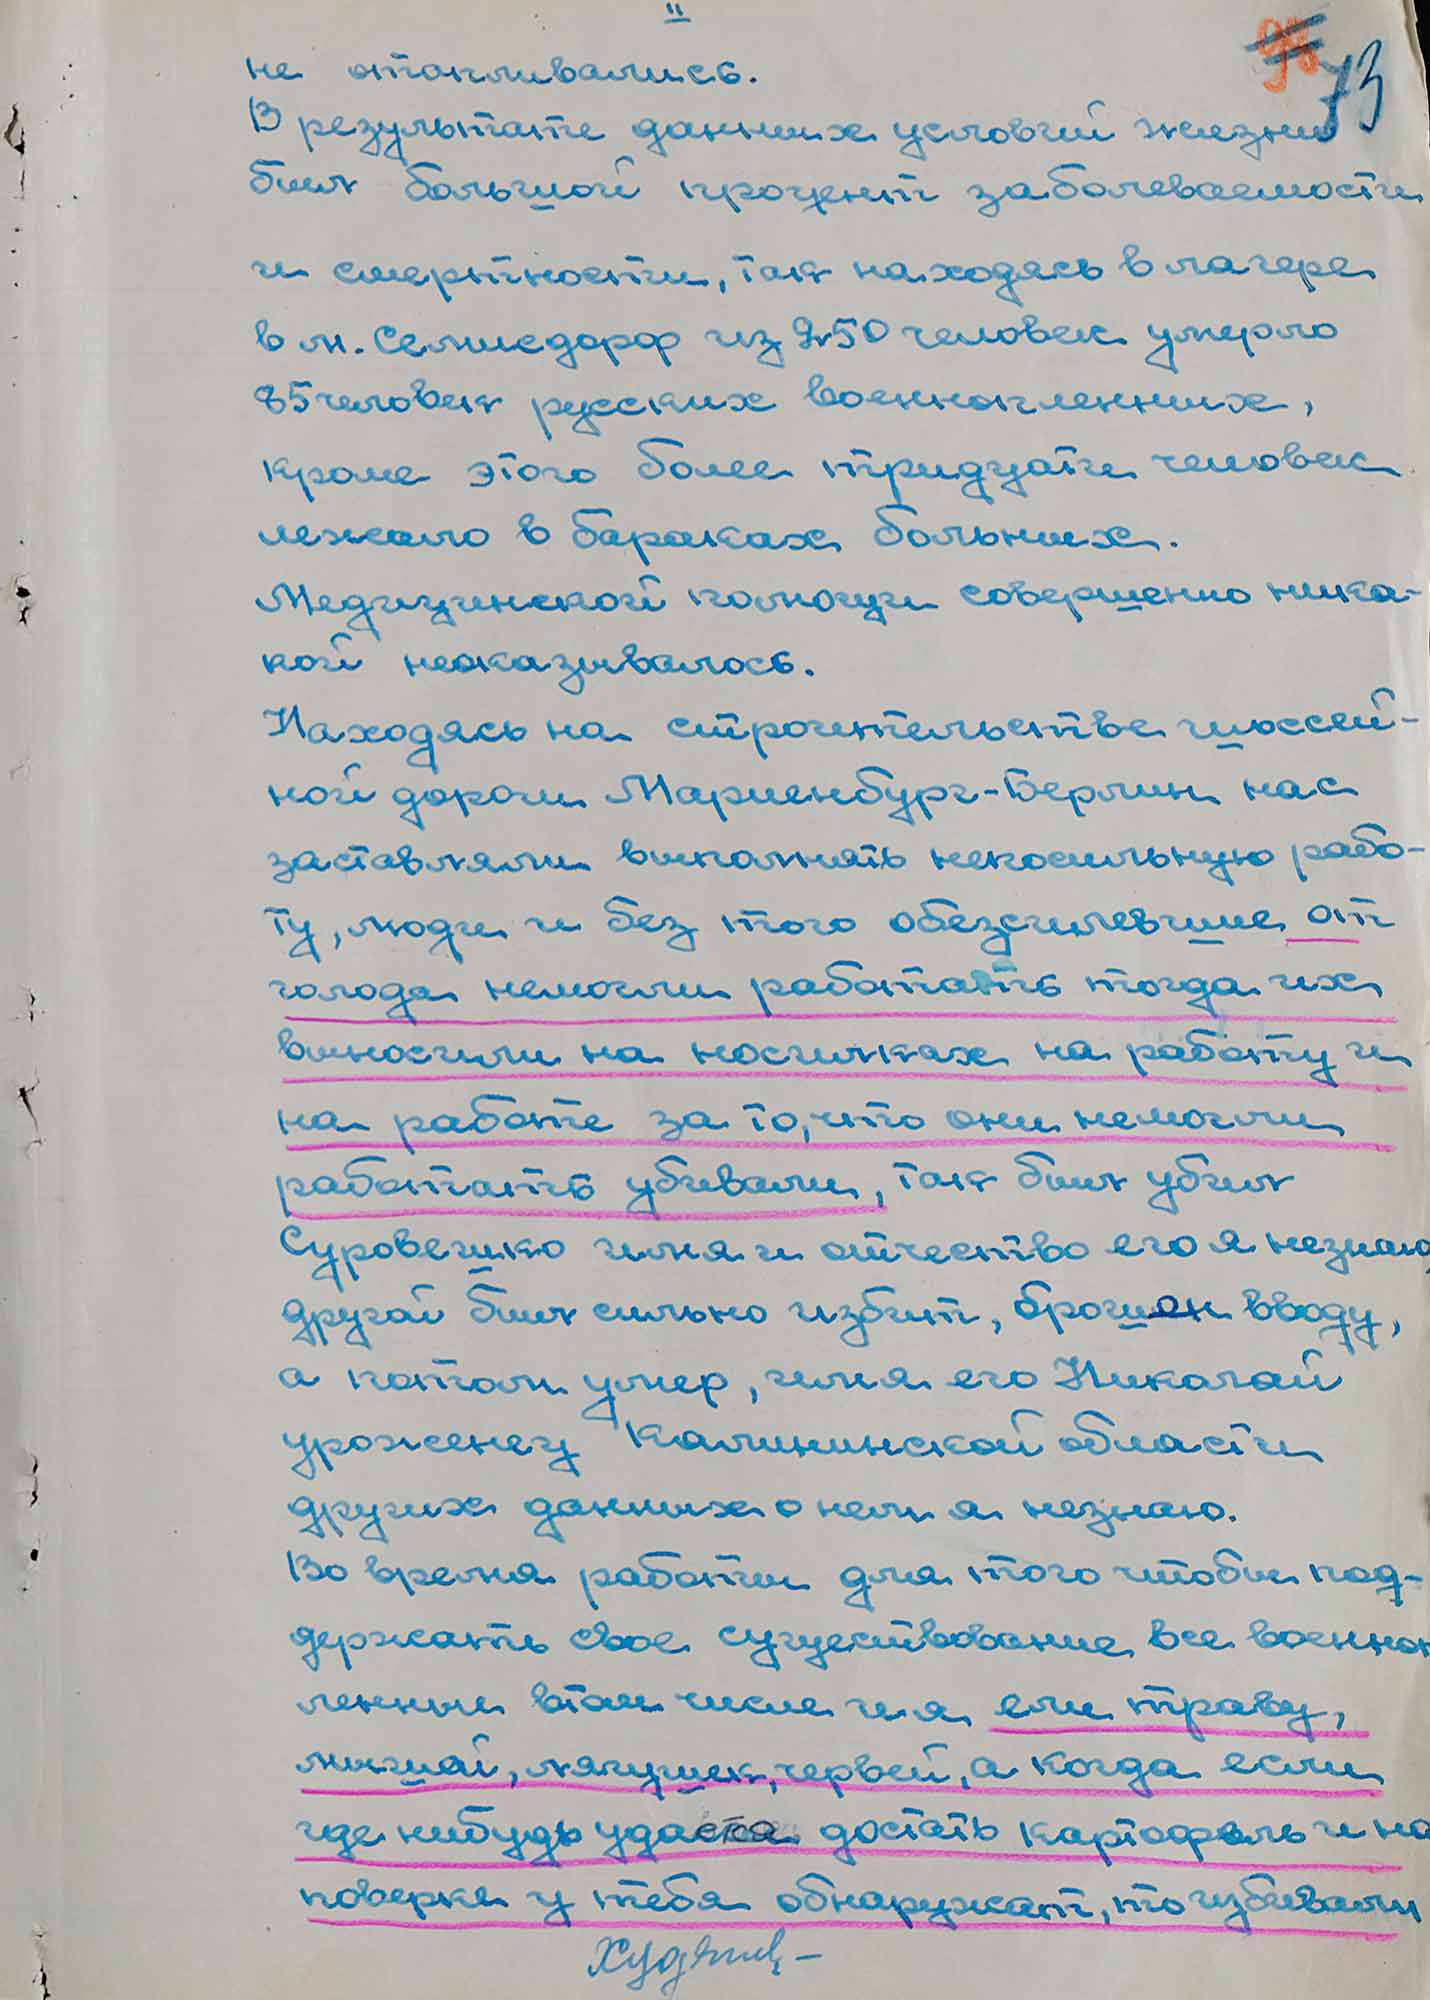 "
73
не отапливались.
В результате данных условий жизни
был большой процент заболеваемости
и смертности, так находясь в лагере
в м. из 250 человек умерло
85 человек русских военнопленных,
кроме этого более тридцати человек
лежало в бараках больных.
Медицинской помощи совершенно ника-
кой неоказывалось.
Находясь на строительстве шоссей-
ной дороги Мариенбург-Берлин нас
заставляли выполнять непосильную рабо-
ту, люди и без того обезсилевшие от
голода немогли работать тогда их
выносили на носилках на работу и
на работе за то, что они немогли
работать убивали, так был убит
Суровешко имя и отчество его я незнаю
другой был сильно избит, брошен вводу,
а потом умер, имя его Николай
уроженец Калининской области
других данных о нем я незнаю.
Во время работы для того чтобы под-
держать свое существование все военноп
ленные втом числе и я ели траву,
мышей, лягушек, червей, а когда если
где нибудь удастся достать картофель и на
поверке у тебя обнаружат, то избивали